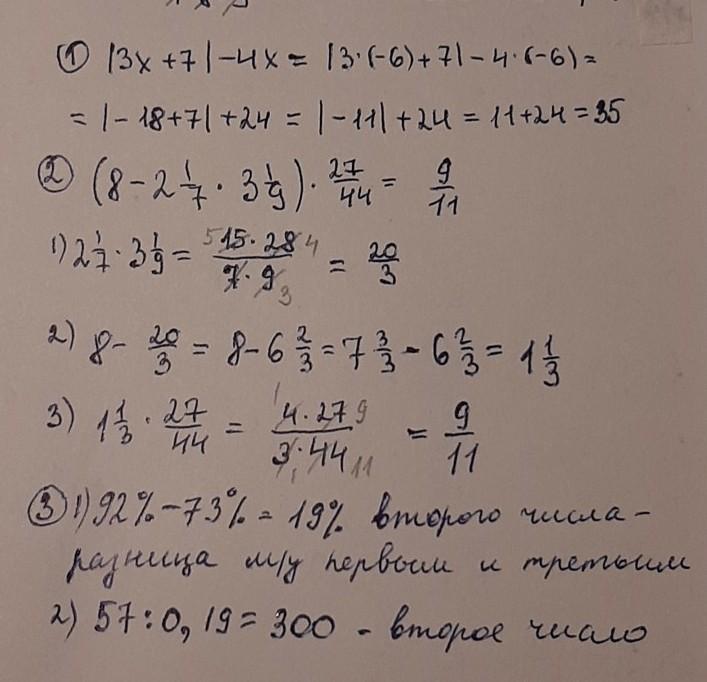 ① |3x+7|-4x = |3·(-6)+7|-4·(-6)=
= |-18+7|+24 = |-11|+24 = 11+24=35
② (8-2 1/7 · 3 1/9) · 27/44 = 9/11
1) 2 1/7 · 3 1/9 = 5 15·28 4 / 7·9 3 = 20/3
2) 8- 20/3 = 8-6 2/3 = 7 3/3 - 6 2/3 = 1 1/3
3) 1 1/3 · 27/44 = 1 4·27 9 / 3 1·44 11 = 9/11
③ 1) 92%-73% = 19% второго числа-
разница м/у первым и третьим
2) 57:0,19=300 - второе число